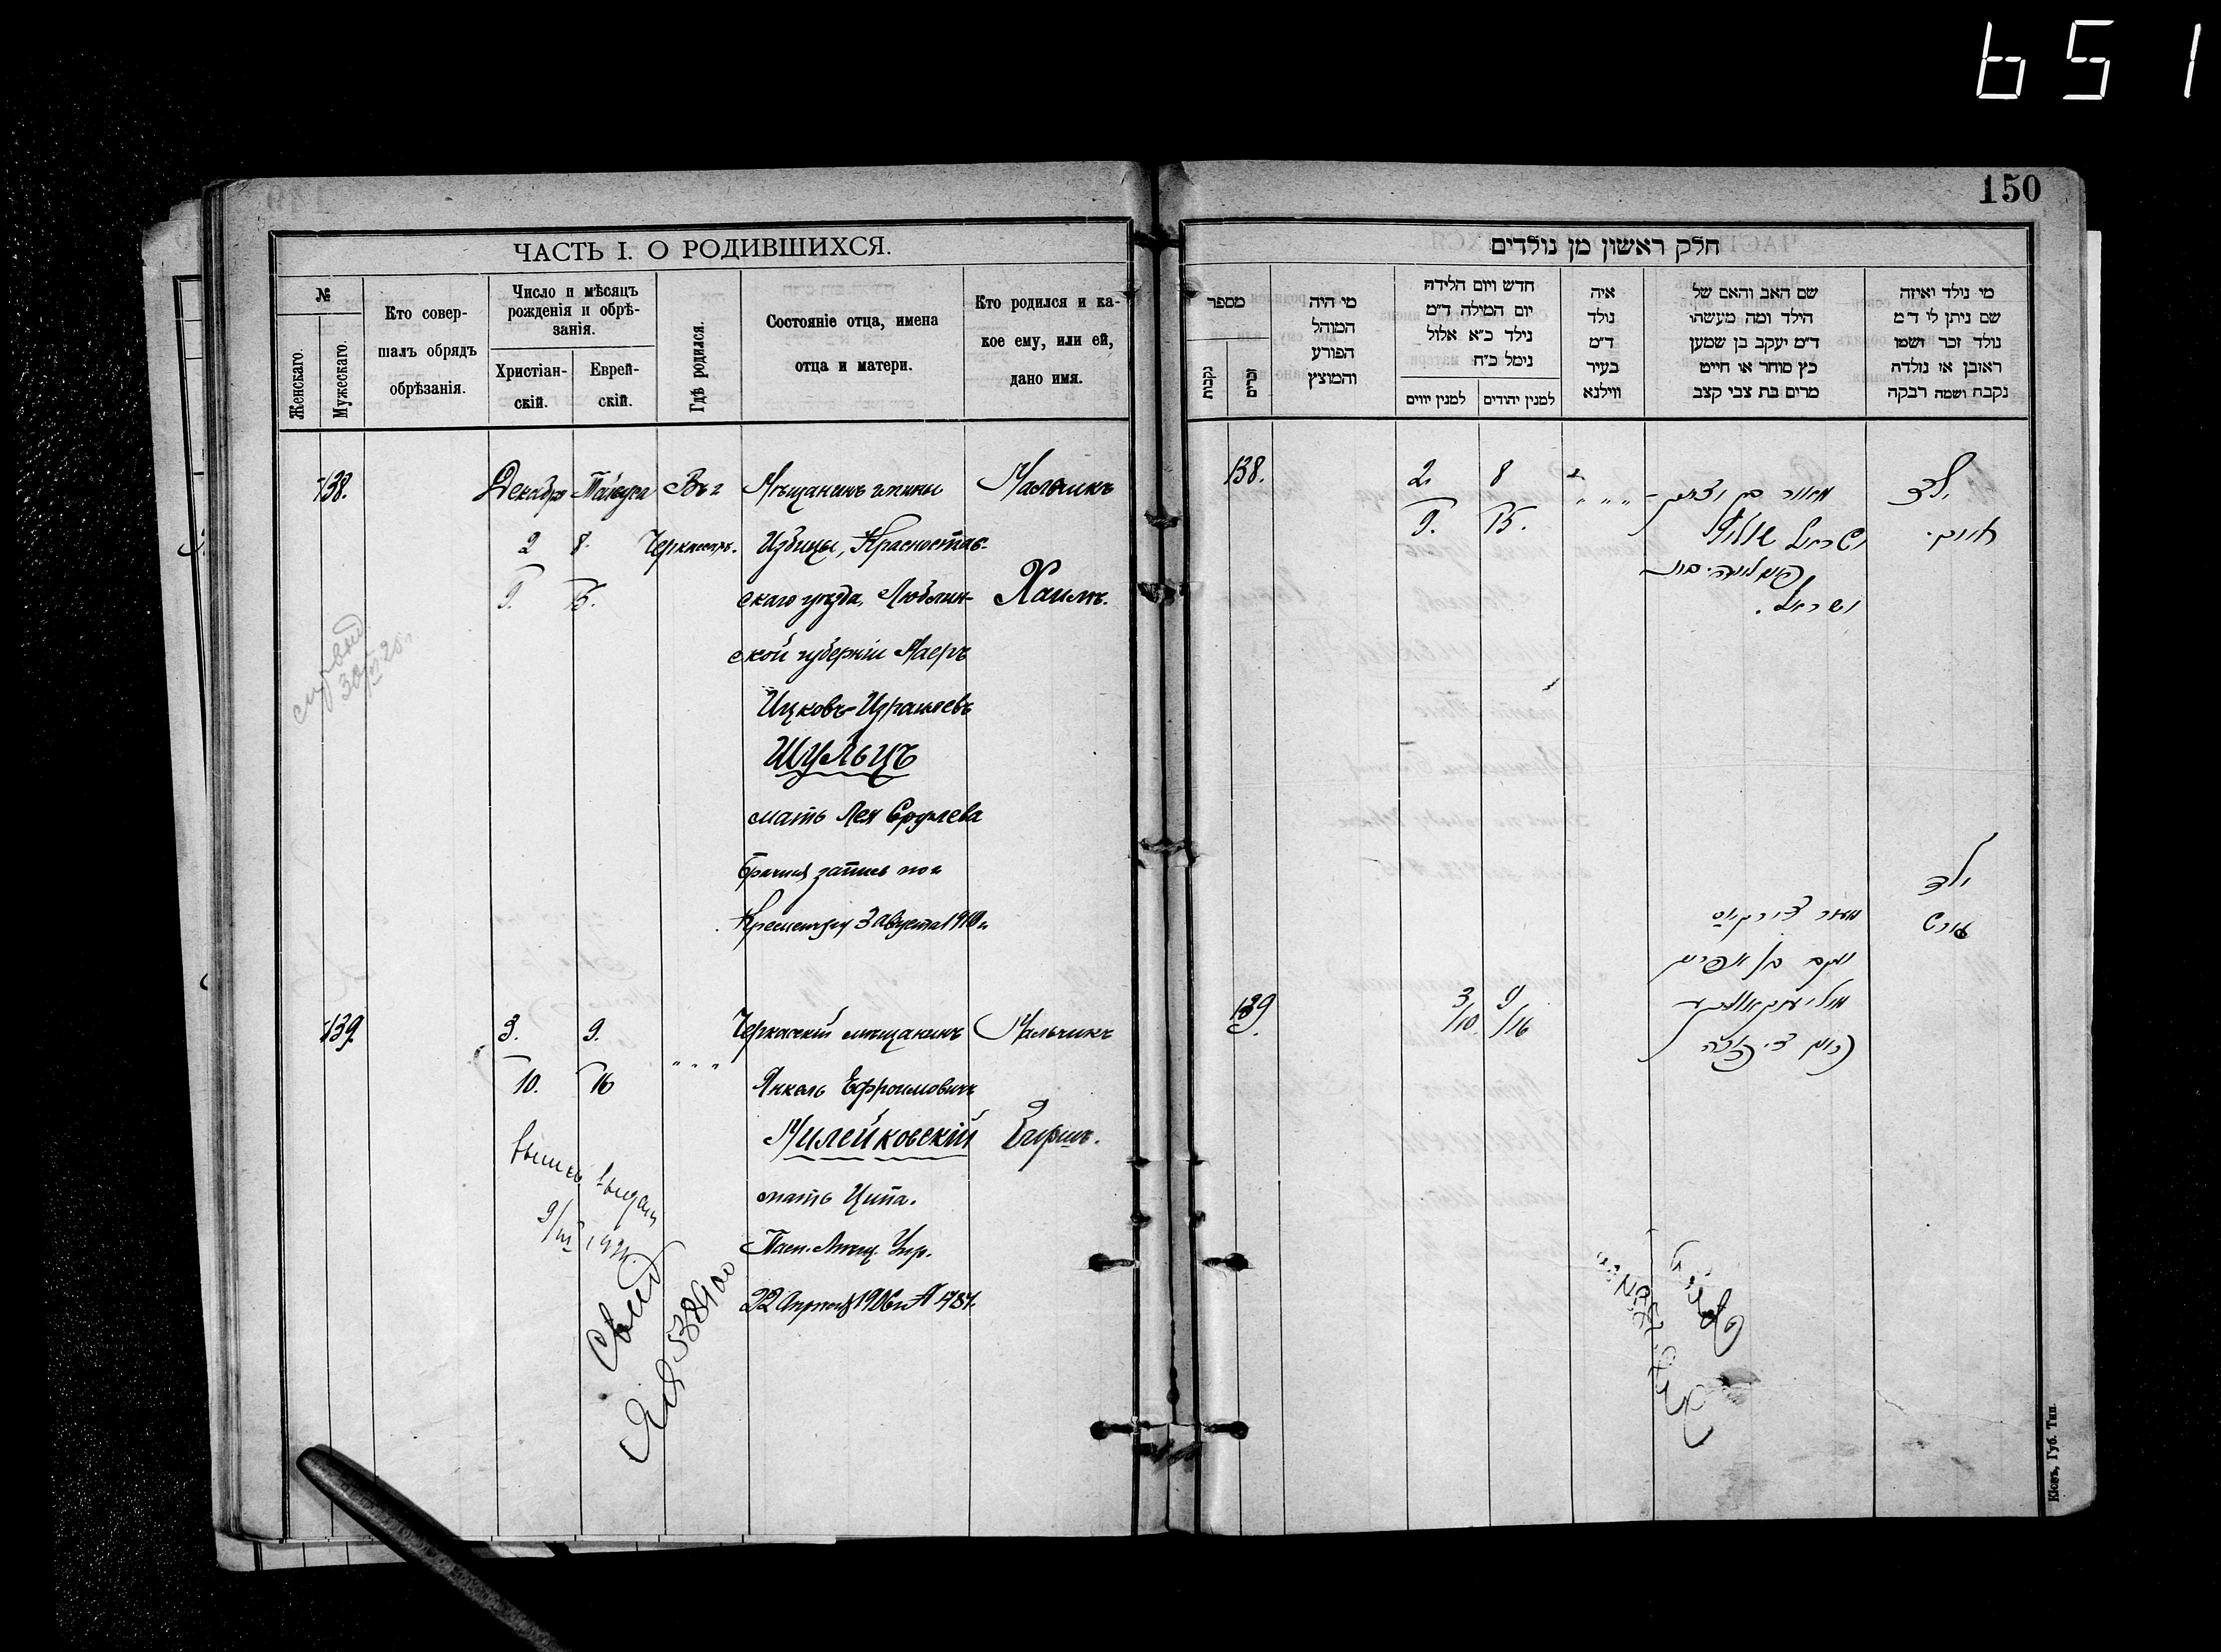 651
150
ЧАСТЬ I. О РОДИВШИХСЯ.
№
Женскаго.
Мужескаго.
Кто совер-
шалъ обрядъ
обрѣзанія.
Число и мѣсяцъ
рожденія и обрѣ-
занія.
Христіан-
скій.
Еврей-
скій.
Гдѣ родился.
Состояніе отца, имена
отца и матери.
Кто родился и ка-
кое ему, или ей,
дано имя.
138.
Декабря
2
9.
8.
15.
Въ г
Черкассахъ.
Мѣщанинъ гмины
Избицы, Красностав-
скаго уѣзда, Люблин-
ской губерніи Маеръ
Ицковъ-Израилевъ
Шульцъ
мать Лея Сруллева
Брачная запись по г
Кременчугу 3 августа 1910 г.
Мальчикъ
Хаимъ.
139.
3.
10.
9.
16
" " "
Черкасскій мѣщанинъ
Янкель Ефроимовичъ
Милейковскій
мать Ципа.
Пасп. Мѣщ. Упр.
22 Апрѣля 1906 г. № 787.
Мальчикъ
Гиршъ.
חלק ראשון מן נולדים
מספר
נקבות
זכרים
מי היה
המוהל
הפורע
והמוצץ
חדש ויום הלידה
יום המילה ד"מ
נילד כ"א אלול
נימל כ"ח
למנין יווים
למנין יהודים
איה
נולד
ד"מ
בעיר
ווילנא
שם האב והאם של
הילד ומה מעשהו
ד"מ יעקב בן שמען
כץ סוחר או חייט
מרים בת צבי קצב
מי נולד ואיזה
שם ניתן לו ד"מ
נולד זכר ושמו
ראובן או נולדה
נקבה ושמה רבקה
138.
2
9.
8
15.
" " "
ישראל.
ילד
חיים.
139.
3/10.
9/16
ילד
הירש
Кіевъ, Губ. Тип.